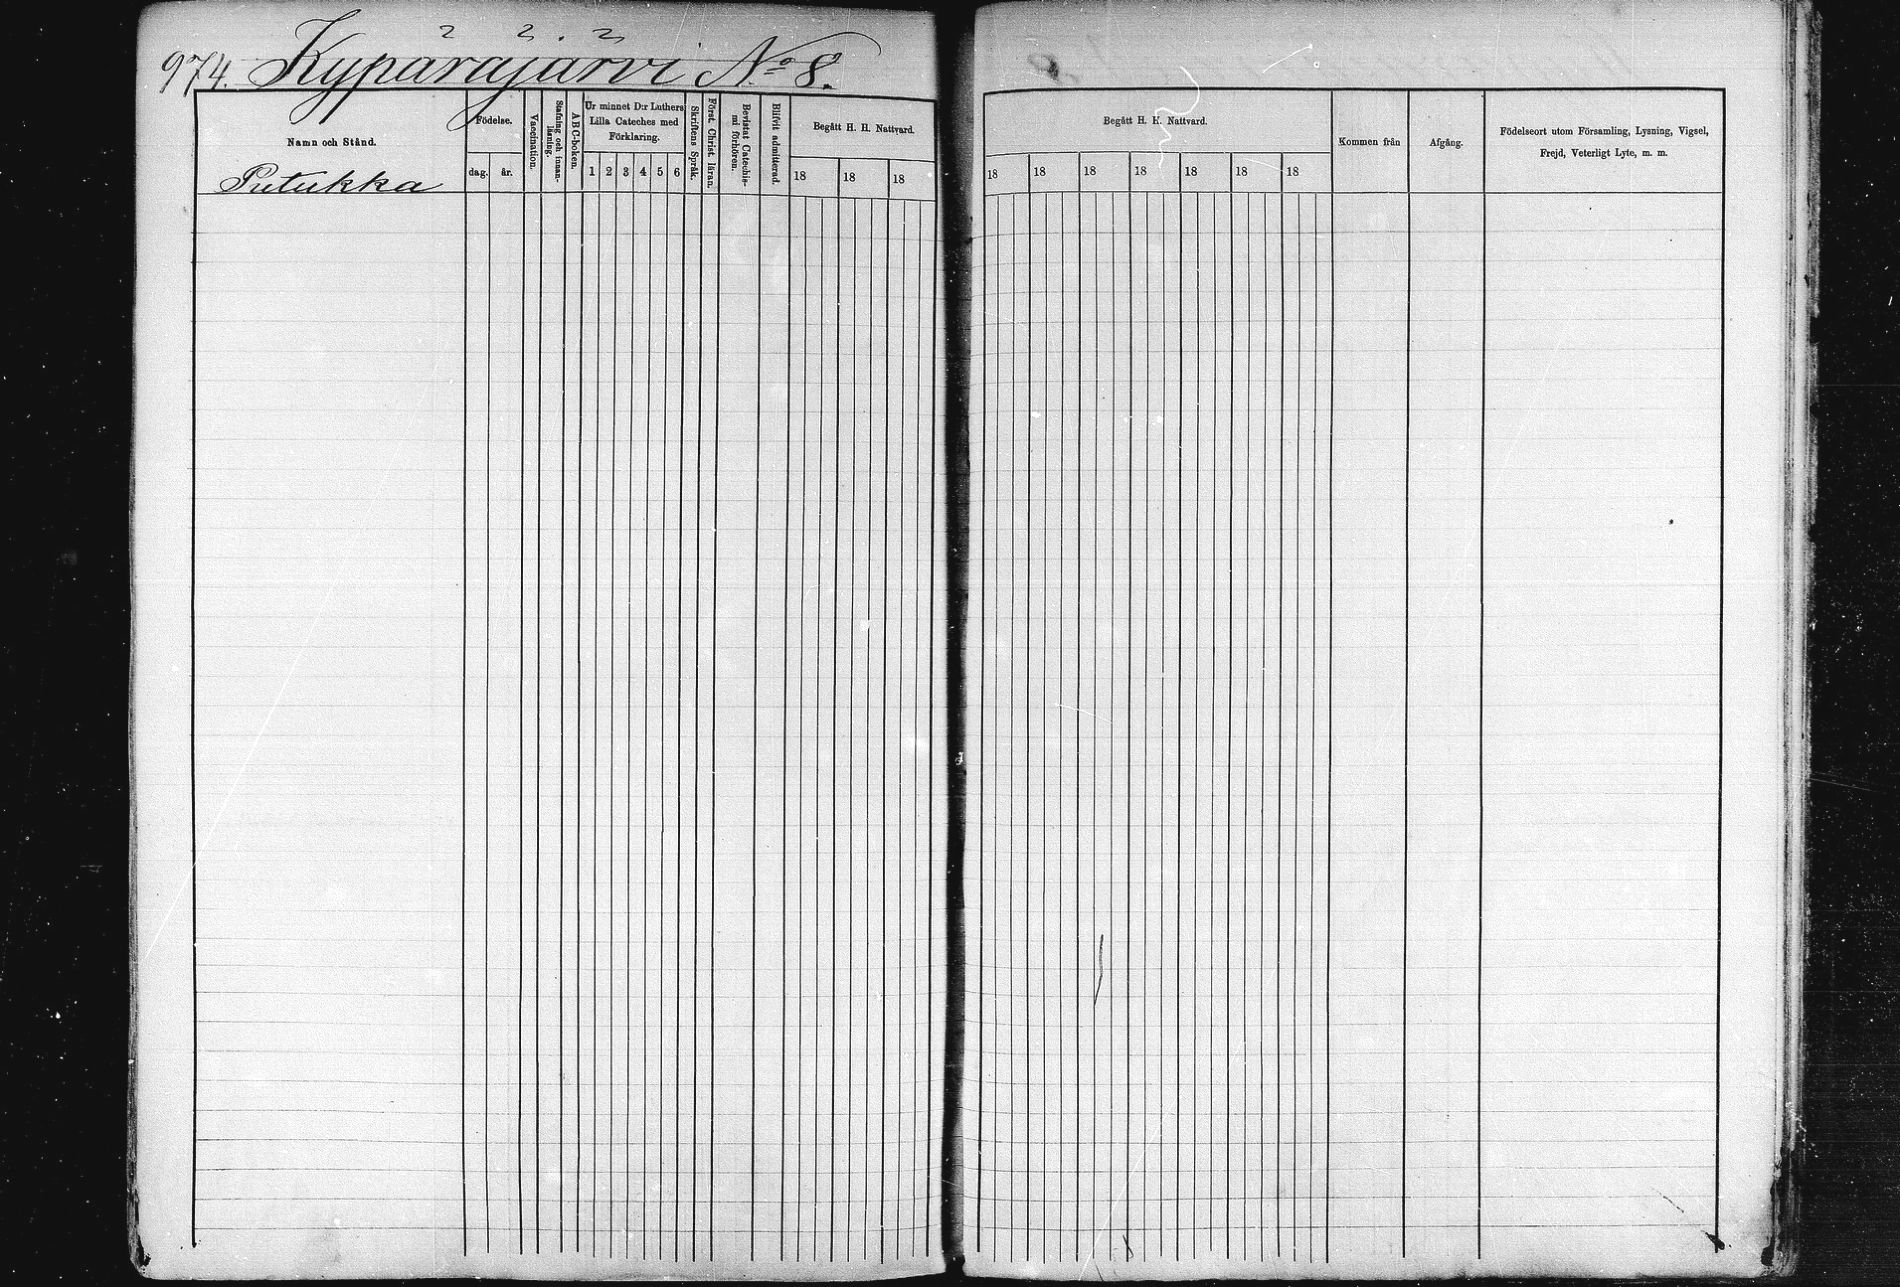 974. Kypäräjärvi No 8.
Namn och Stånd.
Putukka
Födelse.
dag. år.
Vaccination.
Stafning och innan-
läsning.
ABC-boken.
Ur minnet D:r Luthers
Lilla Cateches med
Förklaring.
1 2 3 4 5 6
Skriftens Språk.
Först. Christ. läran.
Bevistat Catechis-
mi förhören.
Blifvit admitterad.
Begått H. H. Nattvard.
18 18 18
Begått H. H. Nattvard.
18 18 18 18 18 18 18
Kommen från
Afgång.
Födelseort utom Församling, Lysning, Vigsel,
Frejd, Veterligt Lyte, m. m.